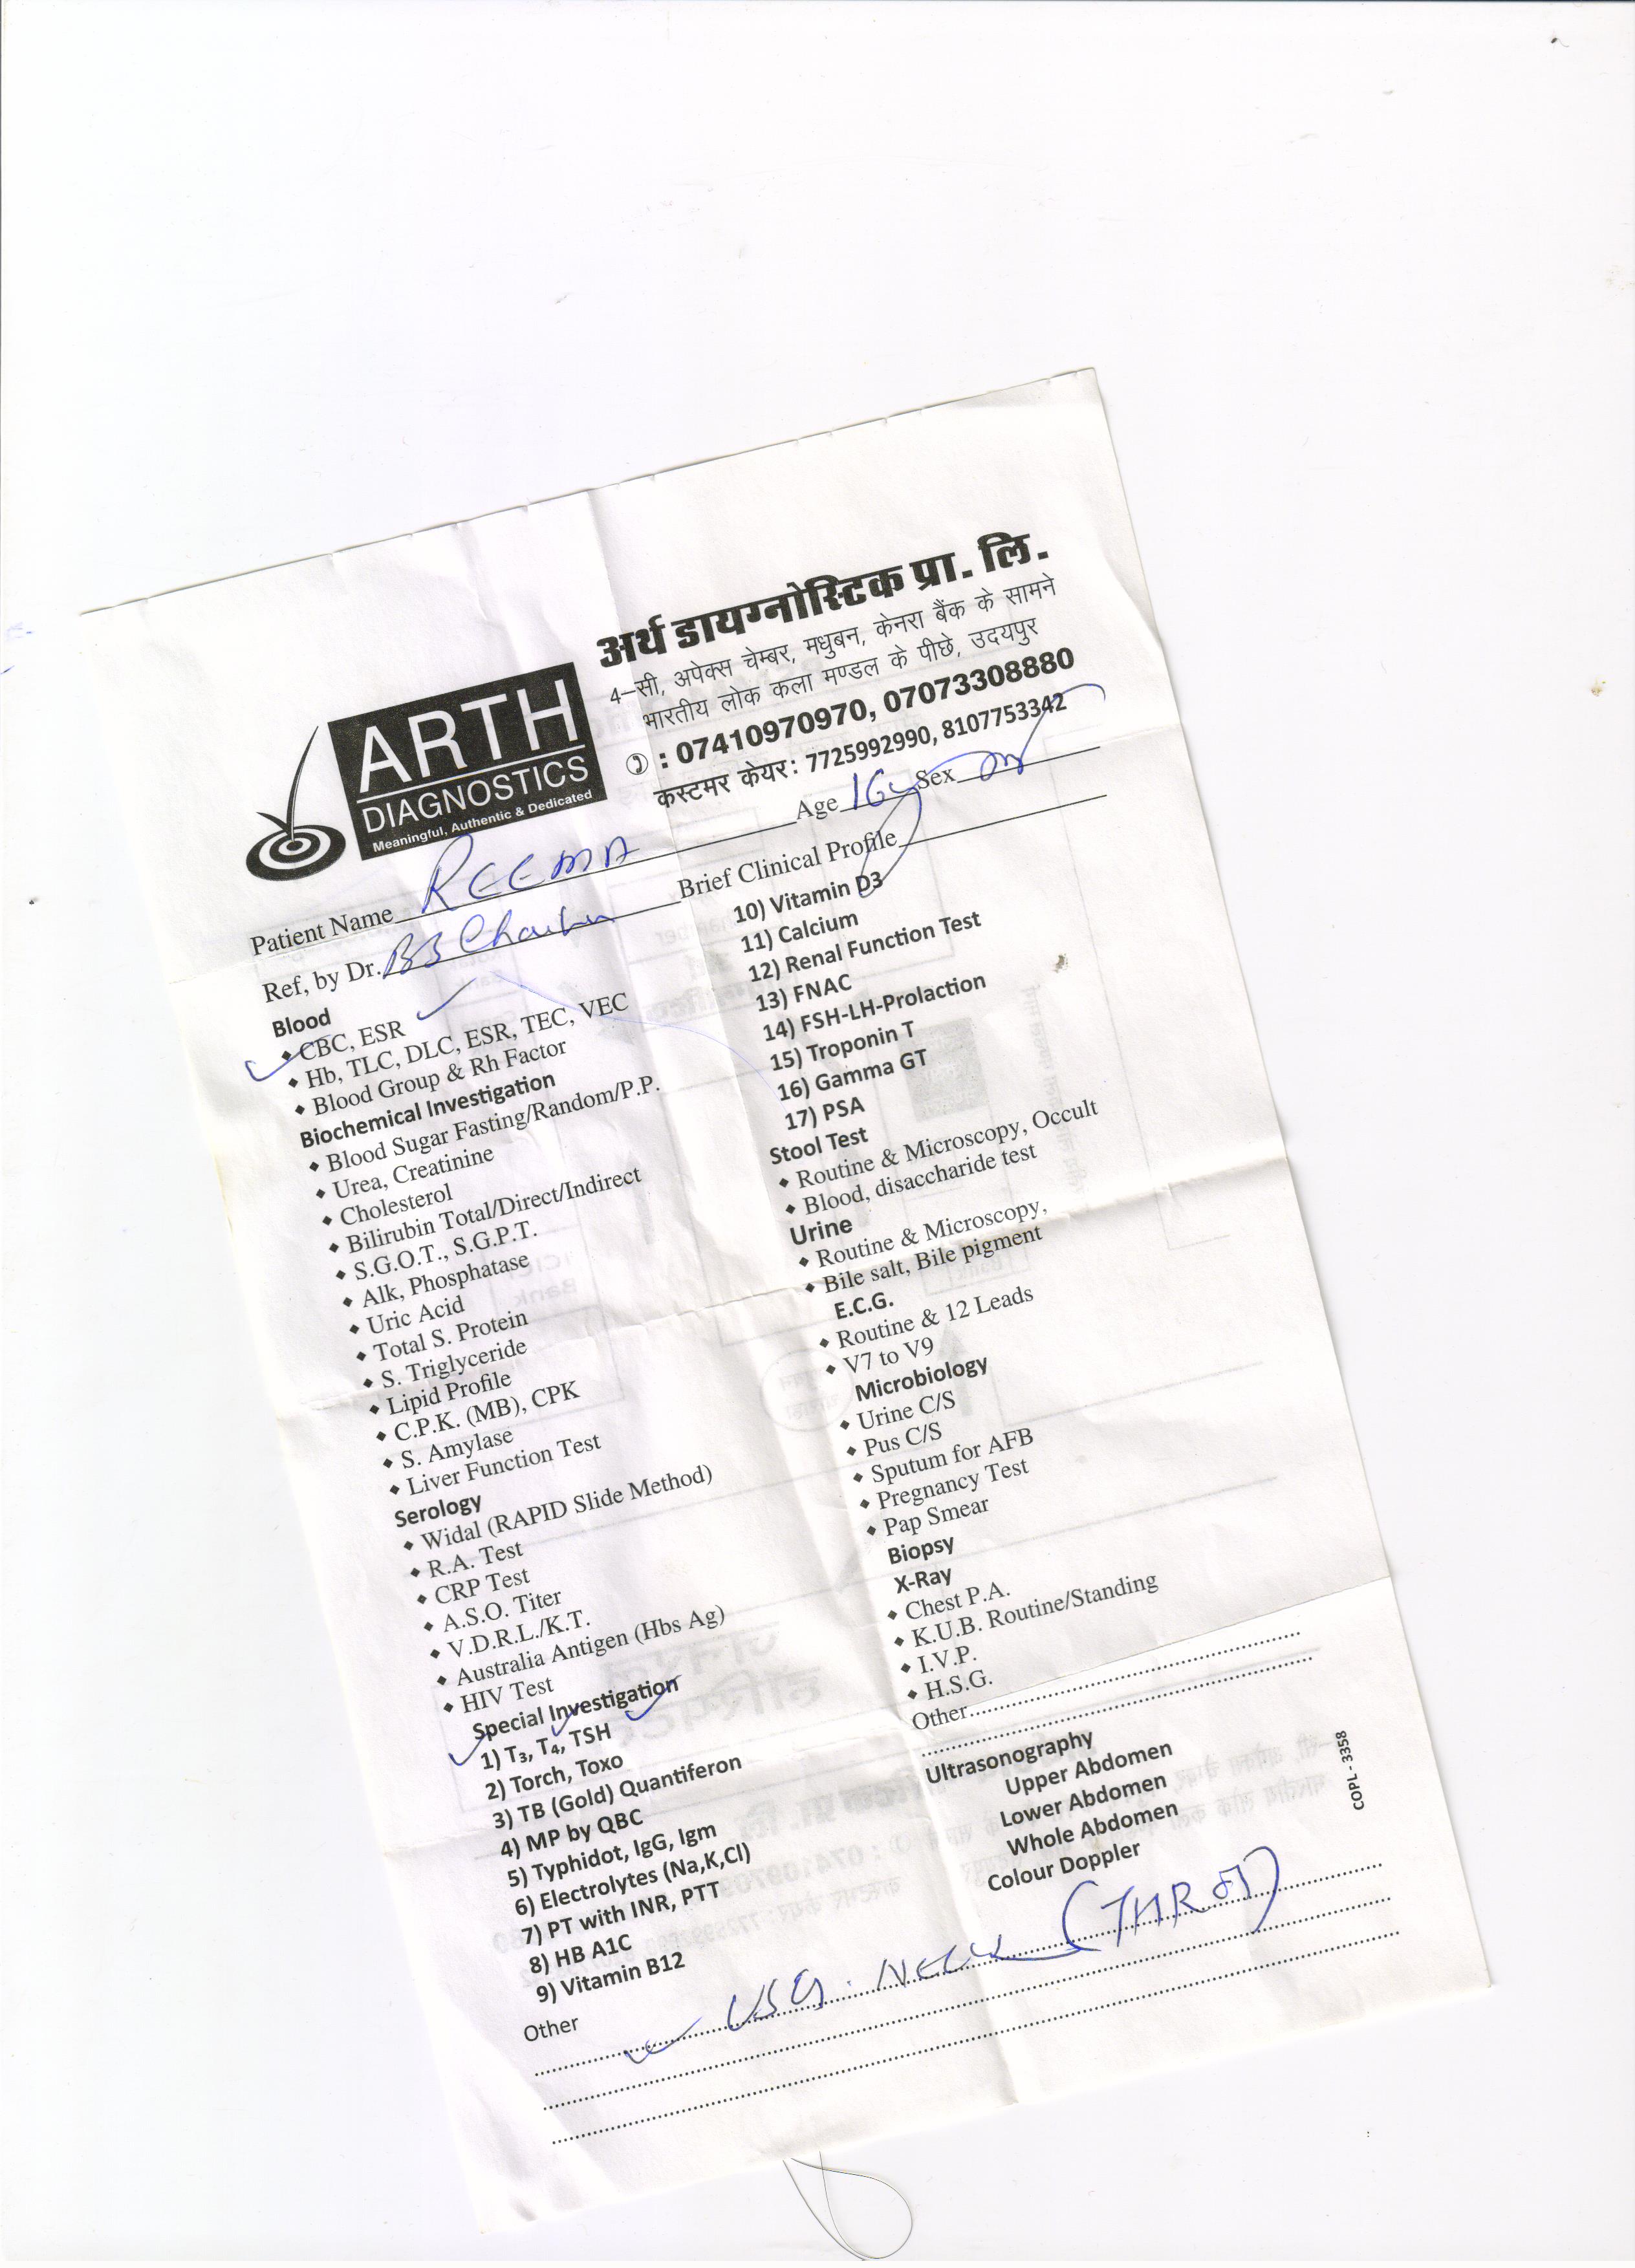 अर्थ डायग्नोस्टिक प्रा. लि.
4–सी, अपेक्स चेम्बर, मधुबन, केनरा बैंक के सामने
भारतीय लोक कला मण्डल के पीछे, उदयपुर
: 07410970970, 07073308880
कस्टमर केयर: 7725992990, 8107753342
ARTH
DIAGNOSTICS
Meaningful, Authentic & Dedicated
Patient Name REEMA Age 16 Sex
Ref, by Dr. BB Brief Clinical Profile
Blood
CBC, ESR
Hb, TLC, DLC, ESR, TEC, VEC
Blood Group & Rh Factor
Biochemical Investigation
Blood Sugar Fasting/Random/P.P.
Urea, Creatinine
Cholesterol
Bilirubin Total/Direct/Indirect
S.G.O.T., S.G.P.T.
Alk, Phosphatase
Uric Acid
Total S. Protein
S. Triglyceride
Lipid Profile
C.P.K. (MB), CPK
S. Amylase
Liver Function Test
Serology
Widal (RAPID Slide Method)
R.A. Test
CRP Test
A.S.O. Titer
V.D.R.L./K.T.
Australia Antigen (Hbs Ag)
HIV Test
Special Investigation
1) T₃, T₄, TSH
2) Torch, Toxo
3) TB (Gold) Quantiferon
4) MP by QBC
5) Typhidot, IgG, Igm
6) Electrolytes (Na,K,Cl)
7) PT with INR, PTT
8) HB A1C
9) Vitamin B12
10) Vitamin D3
11) Calcium
12) Renal Function Test
13) FNAC
14) FSH-LH-Prolaction
15) Troponin T
16) Gamma GT
17) PSA
Stool Test
Routine & Microscopy, Occult
Blood, disaccharide test
Urine
Routine & Microscopy,
Bile salt, Bile pigment
E.C.G.
Routine & 12 Leads
V7 to V9
Microbiology
Urine C/S
Pus C/S
Sputum for AFB
Pregnancy Test
Pap Smear
Biopsy
X-Ray
Chest P.A.
K.U.B. Routine/Standing
I.V.P.
H.S.G.
Other
Ultrasonography
Upper Abdomen
Lower Abdomen
Whole Abdomen
Colour Doppler
COPL - 3358
Other
USG. NECK